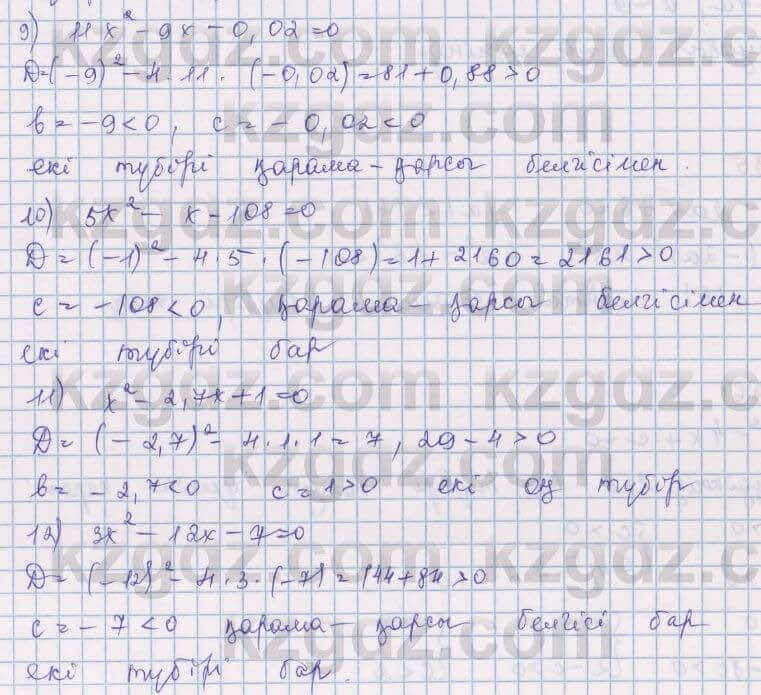 9) 11x² - 9x - 0,02 = 0
D = (-9)² - 4·11·(-0,02) = 81 + 0,88 > 0
b = -9 < 0, c = -0,02 < 0
екі түбірі қарама-қарсы белгісімен.
10) 5x² - x - 108 = 0
D = (-1)² - 4·5·(-108) = 1 + 2160 = 2161 > 0
c = -108 < 0, қарама-қарсы белгісімен
екі түбірі бар
11) x² - 2,7x + 1 = 0
D = (-2,7)² - 4·1·1 = 7,29 - 4 > 0
b = -2,7 < 0 c = 1 > 0 екі оң түбір
12) 3x² - 12x - 7 = 0
D = (-12)² - 4·3·(-7) = 144 + 84 > 0
c = -7 < 0 қарама-қарсы белгісі бар
екі түбірі бар.
kzgdz.com